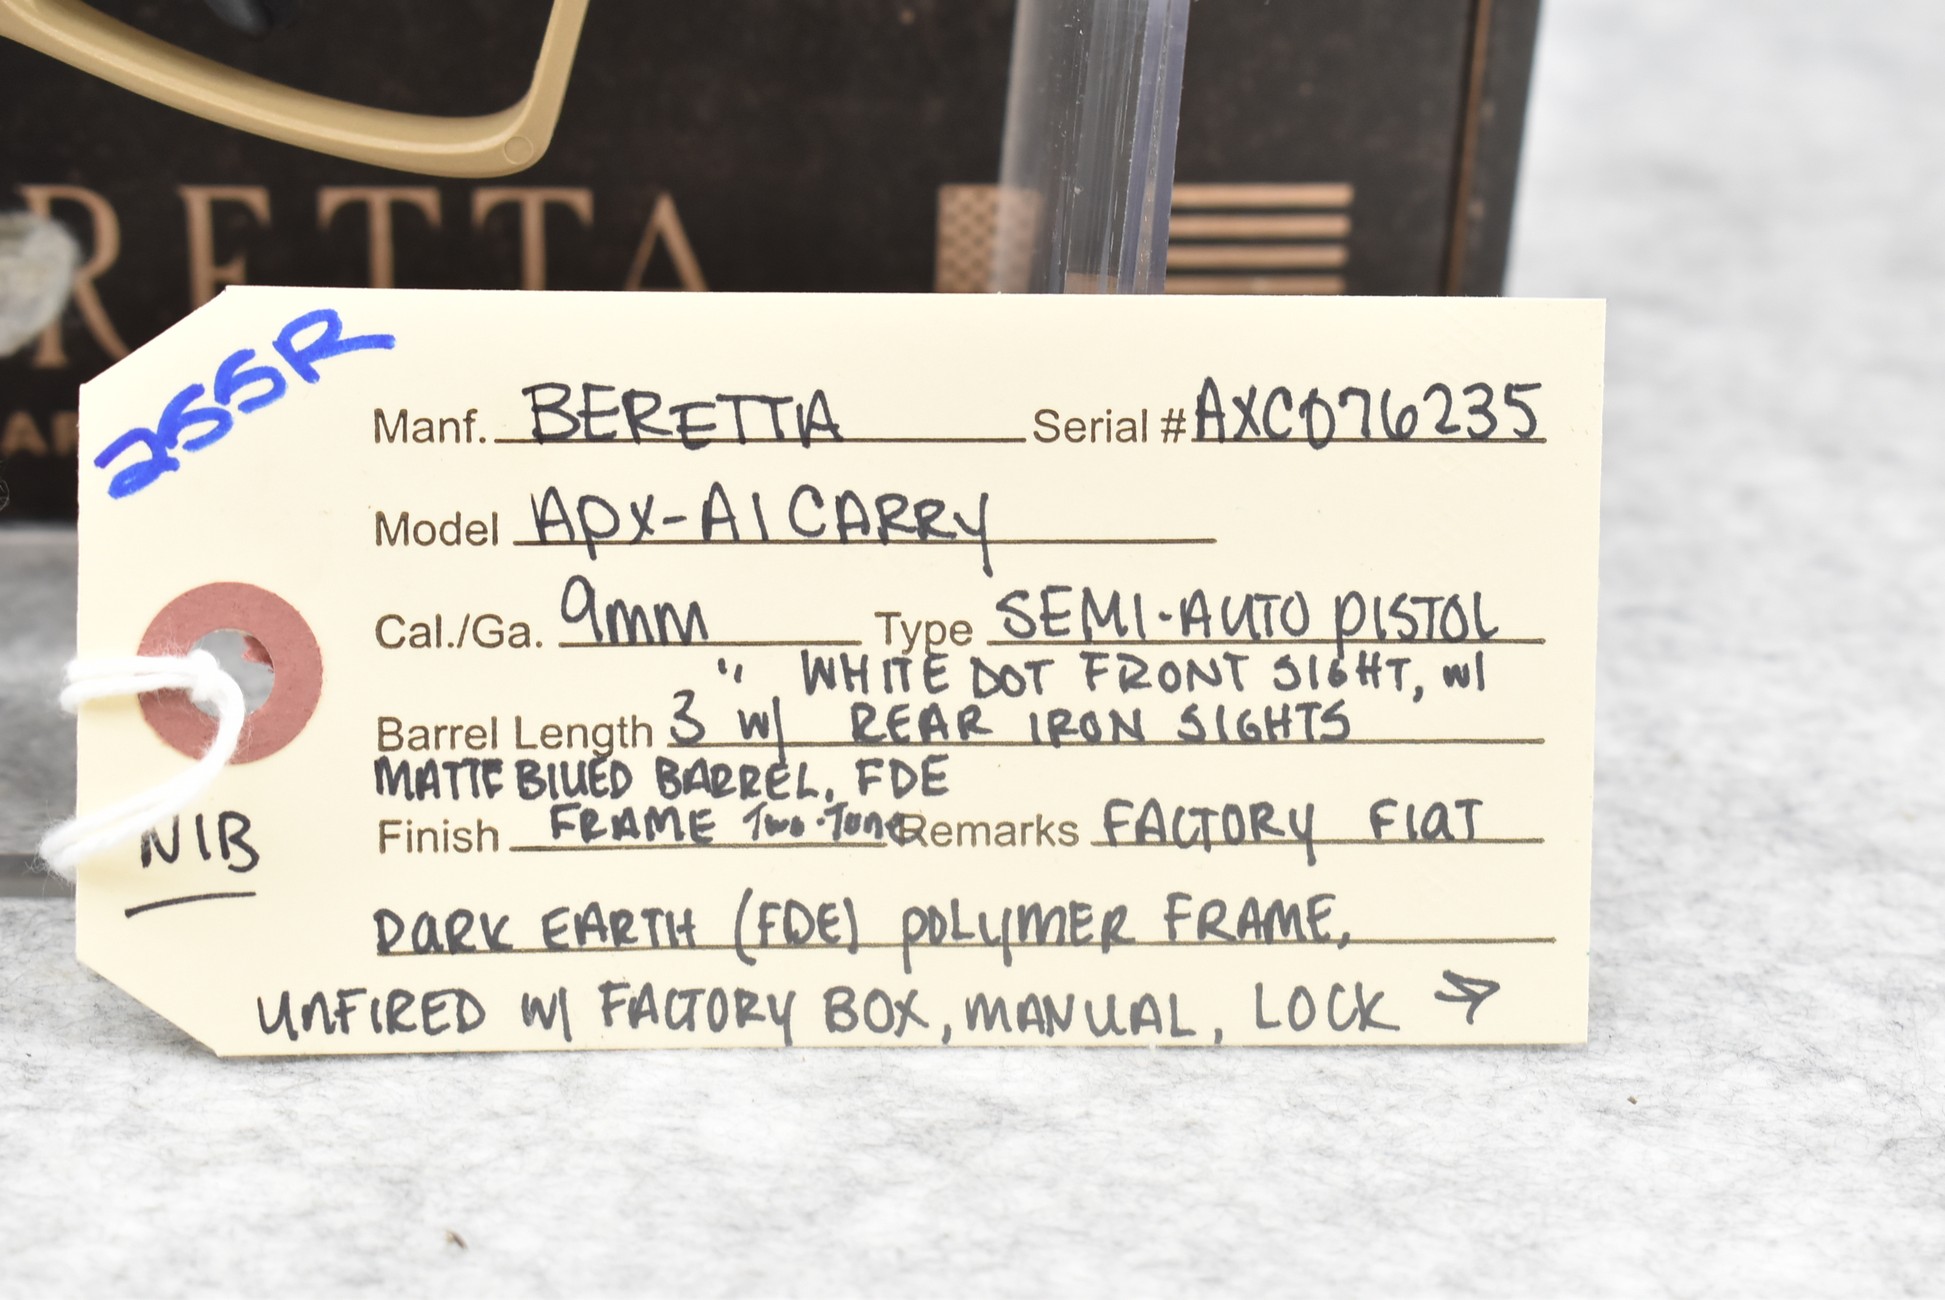 RETTA
255R
Manf. BERETTA Serial # AXC076235
Model APX-A1 CARRY
Cal./Ga. 9mm Type SEMI-AUTO PISTOL
" WHITE DOT FRONT SIGHT, w/
Barrel Length 3 w/ REAR IRON SIGHTS
MATTE BLUED BARREL, FDE
Finish FRAME Two-Tone Remarks FACTORY FLAT
NIB
DARK EARTH (FDE) POLYMER FRAME,
UNFIRED W/ FACTORY BOX, MANUAL, LOCK →